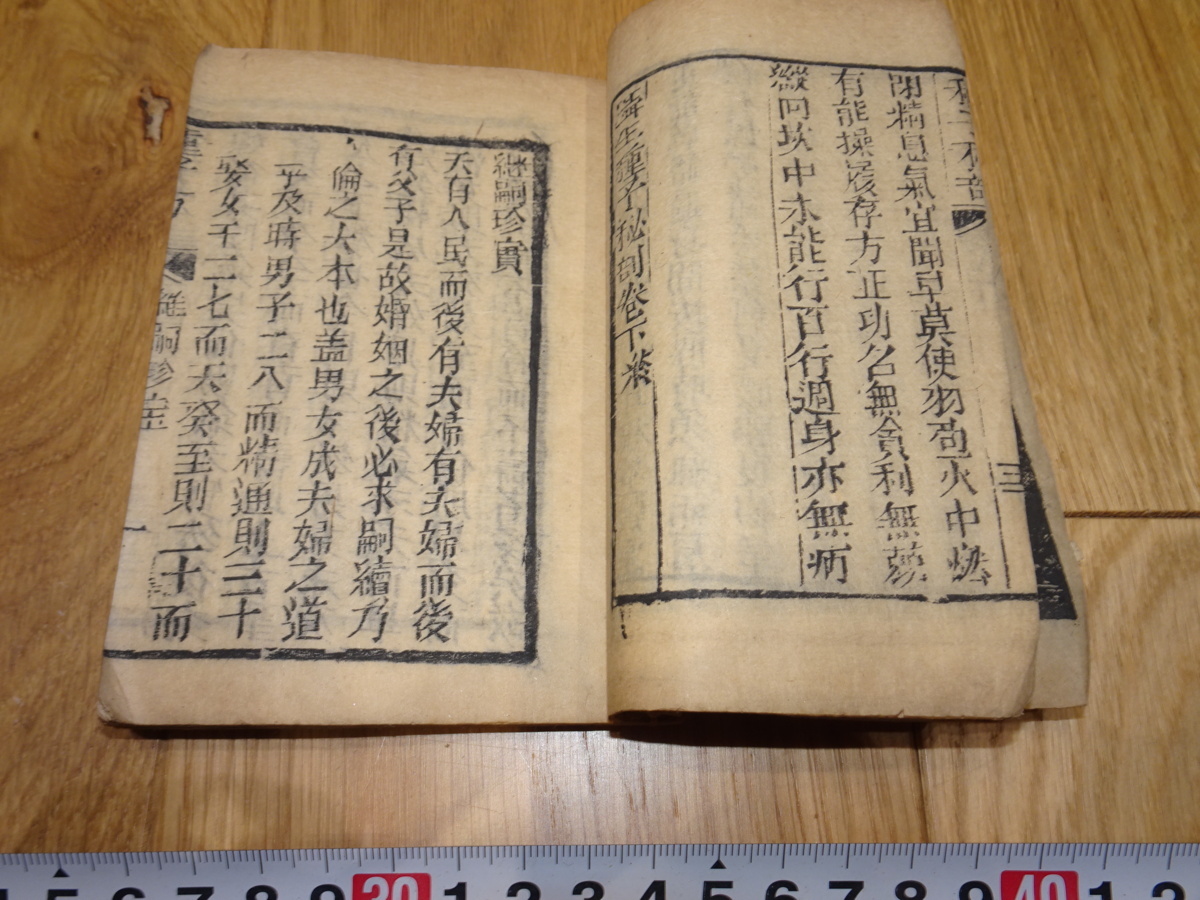 閉精息氣宜聞早莫使羽苞火中燃
有能操履存方正功名無貪利無
㘦回坎中未能行百行週身亦無病
濟生種子秘剖卷下終
三
繼嗣珍寶
天有人民而後有夫婦有夫婦而後
有父子是故婚姻之後必求嗣續乃
人倫之大本也盖男女成夫婦之道
平及時男子二八而精通則三十
娶女子二七而天癸至則二十而
繼嗣珍宝
一
5 6 7 8 9 30 1 2 3 4 5 6 7 8 9 40 1 2